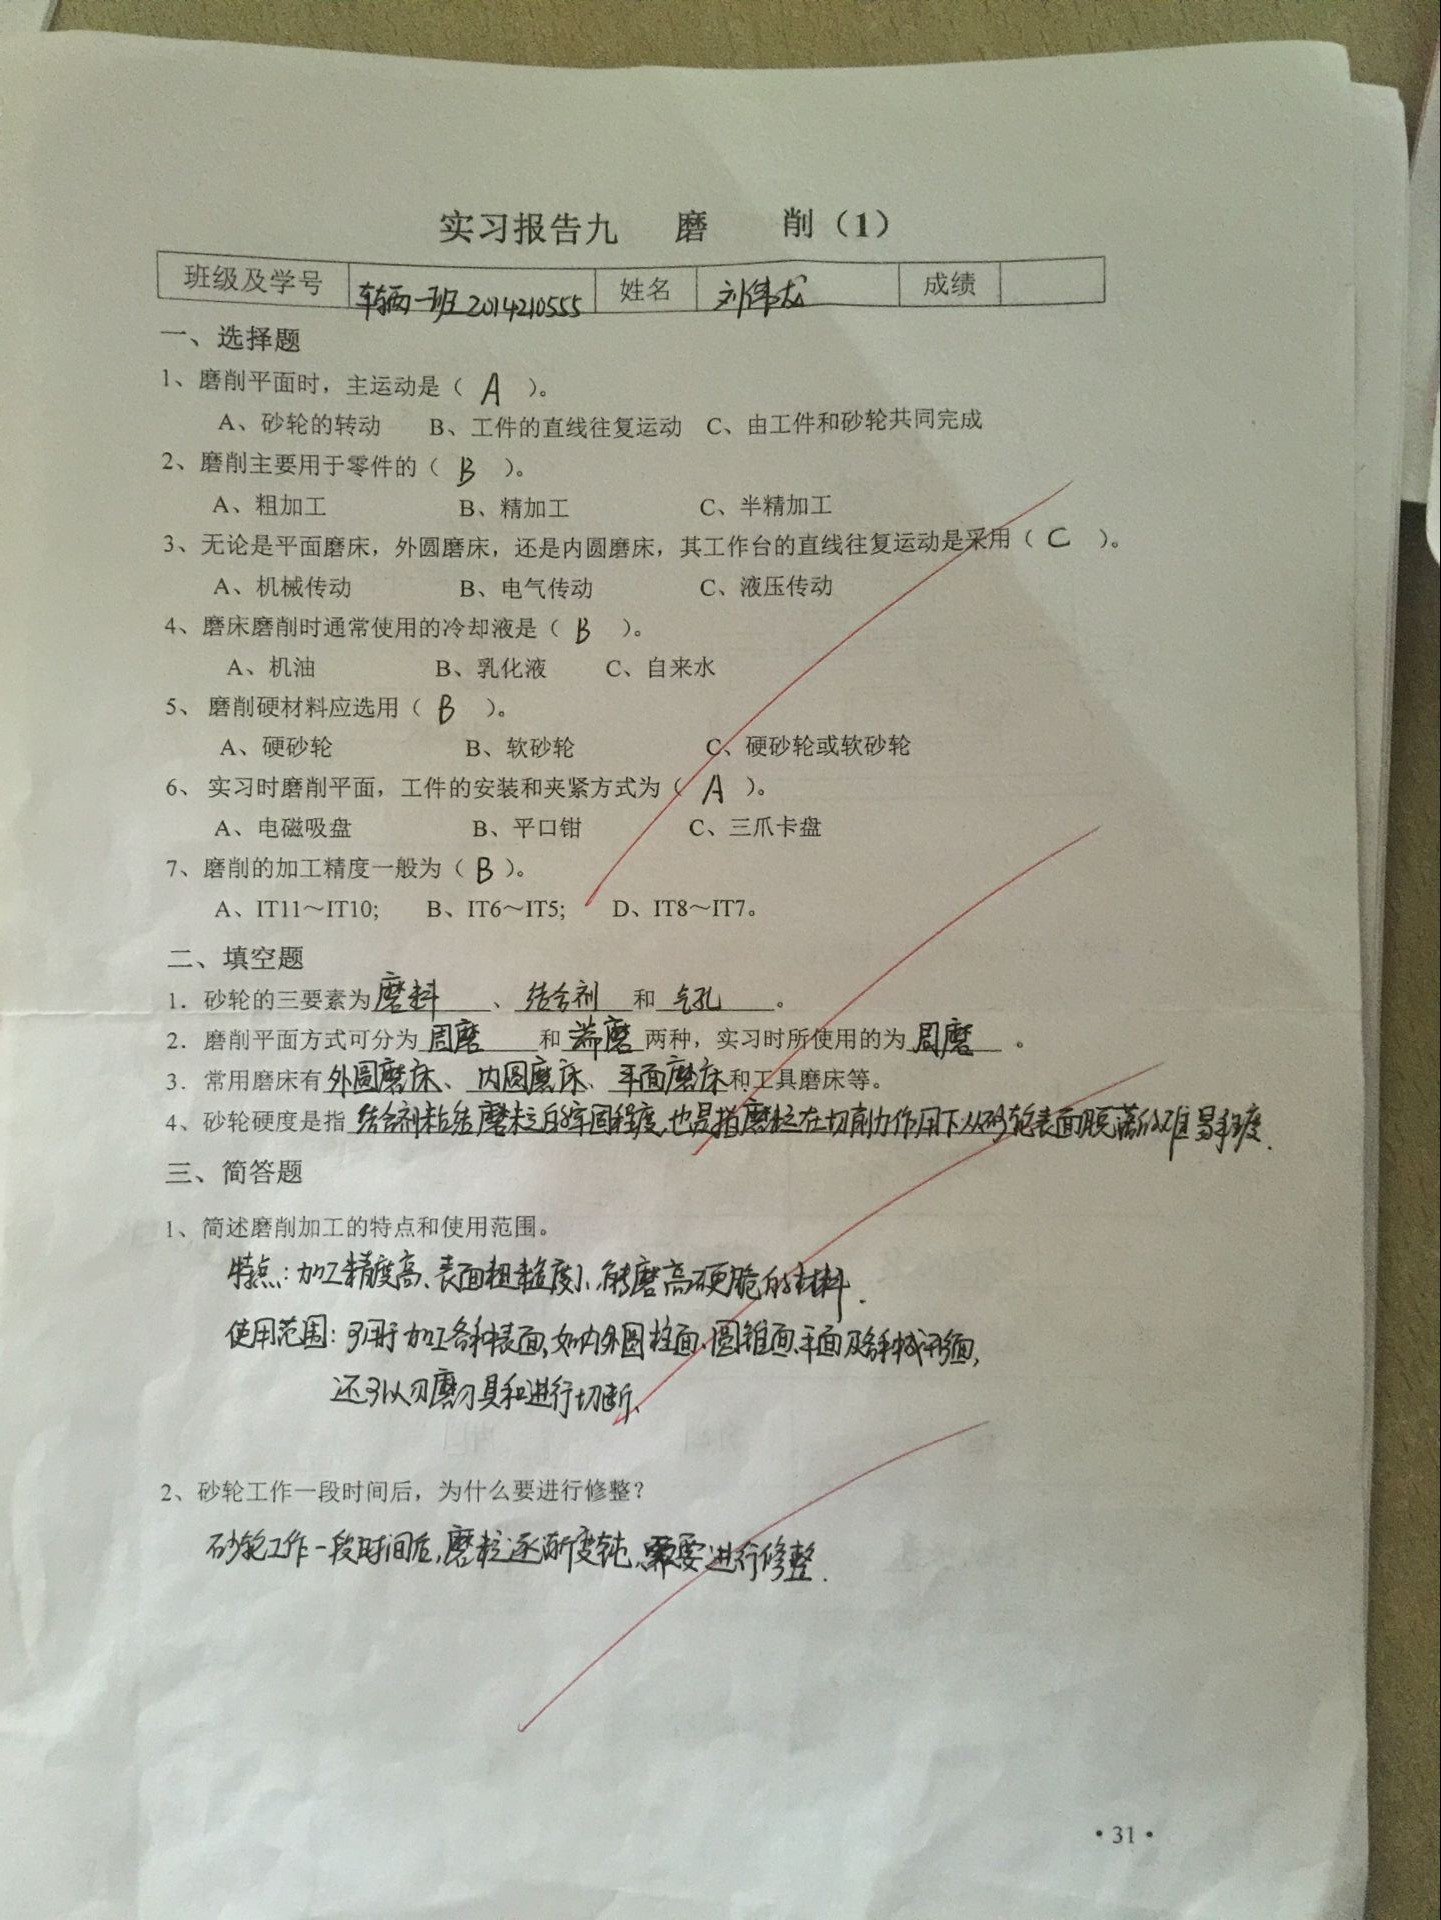 实习报告九 磨 削（1）
班级及学号 车辆一班 2014210555 姓名 刘伟龙 成绩
一、选择题
1、磨削平面时，主运动是（ A ）。
A、砂轮的转动 B、工件的直线往复运动 C、由工件和砂轮共同完成
2、磨削主要用于零件的（ B ）。
A、粗加工 B、精加工 C、半精加工
3、无论是平面磨床，外圆磨床，还是内圆磨床，其工作台的直线往复运动是采用（ C ）。
A、机械传动 B、电气传动 C、液压传动
4、磨床磨削时通常使用的冷却液是（ B ）。
A、机油 B、乳化液 C、自来水
5、磨削硬材料应选用（ B ）。
A、硬砂轮 B、软砂轮 C、硬砂轮或软砂轮
6、实习时磨削平面，工件的安装和夹紧方式为（ A ）。
A、电磁吸盘 B、平口钳 C、三爪卡盘
7、磨削的加工精度一般为（ B ）。
A、IT11～IT10; B、IT6～IT5; D、IT8～IT7。
二、填空题
1．砂轮的三要素为 磨料 、 结合剂 和 气孔 。
2．磨削平面方式可分为 周磨 和 端磨 两种，实习时所使用的为 周磨 。
3．常用磨床有 外圆磨床、内圆磨床、平面磨床 和工具磨床等。
4、砂轮硬度是指 结合剂粘结磨粒的牢固程度，也是指磨粒在切削力作用下从砂轮表面脱落的难易程度.
三、简答题
1、简述磨削加工的特点和使用范围。
特点：加工精度高、表面粗糙度小、能磨高硬脆的材料.
使用范围：可用于加工各种表面，如内外圆柱面、圆锥面、平面及各种成形面，
还可以刃磨刀具和进行切断、
2、砂轮工作一段时间后，为什么要进行修整？
砂轮工作一段时间后，磨粒逐渐变钝，需要进行修整.
·31·